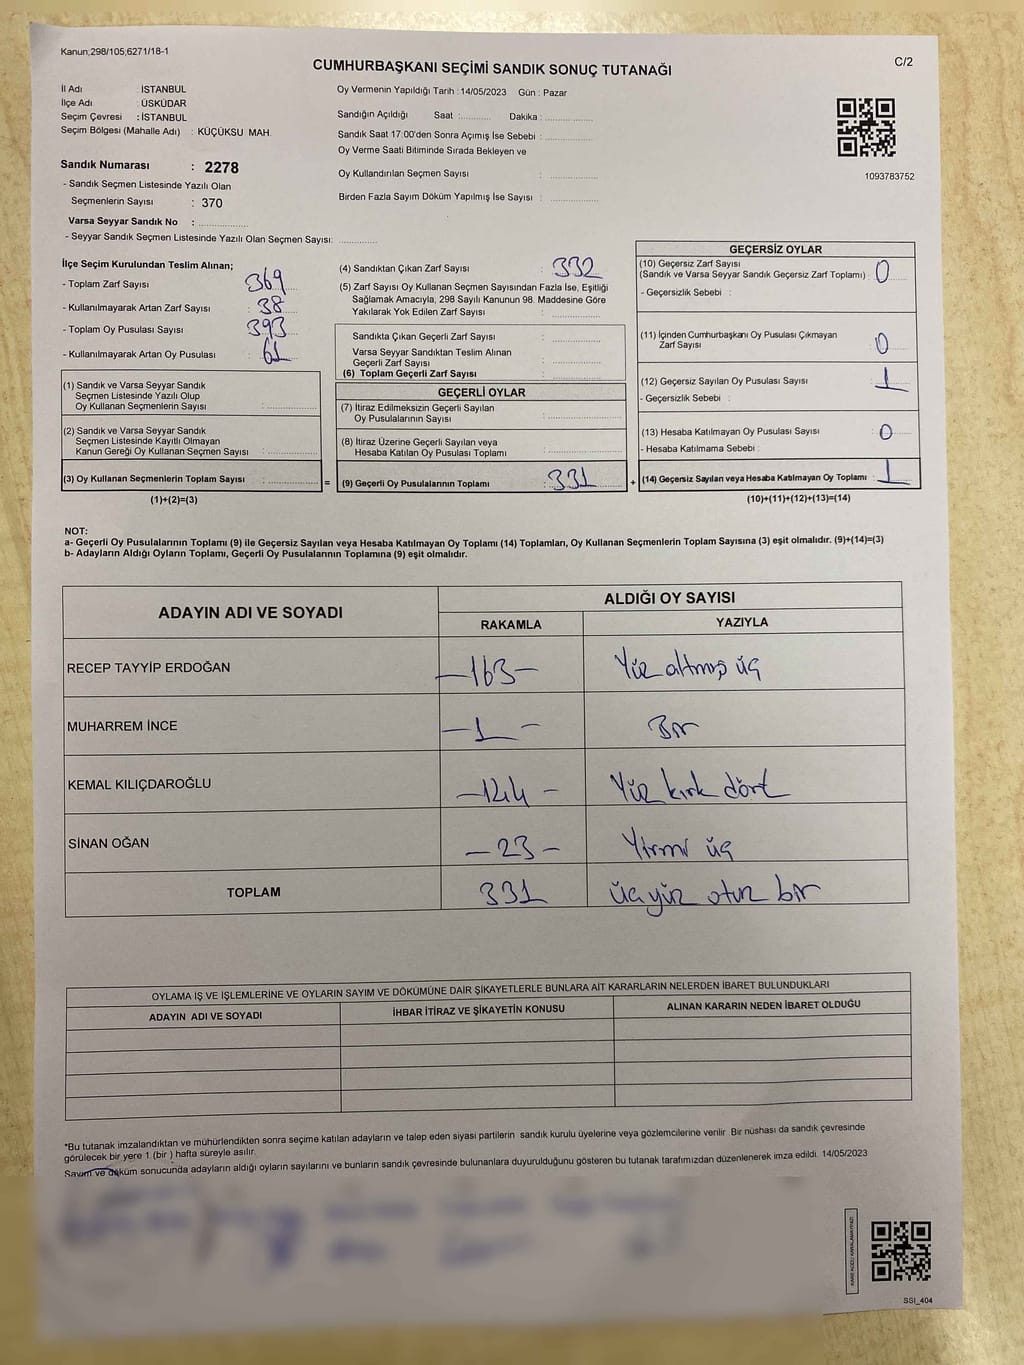 Kanun;298/105;6271/18-1
CUMHURBAŞKANI SEÇİMİ SANDIK SONUÇ TUTANAĞI
C/2
İl Adı : İSTANBUL
İlçe Adı : ÜSKÜDAR
Seçim Çevresi : İSTANBUL
Seçim Bölgesi (Mahalle Adı) : KÜÇÜKSU MAH.
Sandık Numarası : 2278
- Sandık Seçmen Listesinde Yazılı Olan
Seçmenlerin Sayısı : 370
Varsa Seyyar Sandık No :
- Seyyar Sandık Seçmen Listesinde Yazılı Olan Seçmen Sayısı:
Oy Vermenin Yapıldığı Tarih : 14/05/2023 Gün : Pazar
Sandığın Açıldığı Saat : Dakika :
Sandık Saat 17:00'den Sonra Açımış İse Sebebi :
Oy Verme Saati Bitiminde Sırada Bekleyen ve
Oy Kullandırılan Seçmen Sayısı :
Birden Fazla Sayım Döküm Yapılmış İse Sayısı :
1093783752
İlçe Seçim Kurulundan Teslim Alınan;
- Toplam Zarf Sayısı : 369
- Kullanılmayarak Artan Zarf Sayısı : 38
- Toplam Oy Pusulası Sayısı : 393
- Kullanılmayarak Artan Oy Pusulası : 61
(1) Sandık ve Varsa Seyyar Sandık
Seçmen Listesinde Yazılı Olup
Oy Kullanan Seçmenlerin Sayısı :
(2) Sandık ve Varsa Seyyar Sandık
Seçmen Listesinde Kayıtlı Olmayan
Kanun Gereği Oy Kullanan Seçmen Sayısı :
(3) Oy Kullanan Seçmenlerin Toplam Sayısı :
(1)+(2)=(3)
=
(4) Sandıktan Çıkan Zarf Sayısı : 332
(5) Zarf Sayısı Oy Kullanan Seçmen Sayısından Fazla İse, Eşitliği
Sağlamak Amacıyla, 298 Sayılı Kanunun 98. Maddesine Göre
Yakılarak Yok Edilen Zarf Sayısı :
Sandıkta Çıkan Geçerli Zarf Sayısı :
Varsa Seyyar Sandıktan Teslim Alınan
Geçerli Zarf Sayısı :
(6) Toplam Geçerli Zarf Sayısı :
GEÇERLİ OYLAR
(7) İtiraz Edilmeksizin Geçerli Sayılan
Oy Pusulalarının Sayısı :
(8) İtiraz Üzerine Geçerli Sayılan veya
Hesaba Katılan Oy Pusulası Toplamı :
(9) Geçerli Oy Pusulalarının Toplamı : 331
+
GEÇERSİZ OYLAR
(10) Geçersiz Zarf Sayısı
(Sandık ve Varsa Seyyar Sandık Geçersiz Zarf Toplamı) : 0
- Geçersizlik Sebebi :
(11) İçinden Cumhurbaşkanı Oy Pusulası Çıkmayan
Zarf Sayısı : 0
(12) Geçersiz Sayılan Oy Pusulası Sayısı : 1
- Geçersizlik Sebebi :
(13) Hesaba Katılmayan Oy Pusulası Sayısı : 0
- Hesaba Katılmama Sebebi :
(14) Geçersiz Sayılan veya Hesaba Katılmayan Oy Toplamı : 1
(10)+(11)+(12)+(13)=(14)
NOT:
a- Geçerli Oy Pusulalarının Toplamı (9) ile Geçersiz Sayılan veya Hesaba Katılmayan Oy Toplamı (14) Toplamları, Oy Kullanan Seçmenlerin Toplam Sayısına (3) eşit olmalıdır. (9)+(14)=(3)
b- Adayların Aldığı Oyların Toplamı, Geçerli Oy Pusulalarının Toplamına (9) eşit olmalıdır.
ADAYIN ADI VE SOYADI
ALDIĞI OY SAYISI
RAKAMLA YAZIYLA
RECEP TAYYİP ERDOĞAN -163- Yüz altmış üç
MUHARREM İNCE -1- Bir
KEMAL KILIÇDAROĞLU -144- Yüz kırk dört
SİNAN OĞAN -23- Yirmi üç
TOPLAM 331 üçyüz otuz bir
OYLAMA İŞ VE İŞLEMLERİNE VE OYLARIN SAYIM VE DÖKÜMÜNE DAİR ŞİKAYETLERLE BUNLARA AİT KARARLARIN NELERDEN İBARET BULUNDUKLARI
ADAYIN ADI VE SOYADI İHBAR İTİRAZ VE ŞİKAYETİN KONUSU ALINAN KARARIN NEDEN İBARET OLDUĞU
*Bu tutanak imzalandıktan ve mühürlendikten sonra seçime katılan adayların ve talep eden siyasi partilerin sandık kurulu üyelerine veya gözlemcilerine verilir. Bir nüshası da sandık çevresinde
görülecek bir yere 1 (bir) hafta süreyle asılır.
Sayım ve döküm sonucunda adayların aldığı oyların sayılarını ve bunların sandık çevresinde bulunanlara duyurulduğunu gösteren bu tutanak tarafımızdan düzenlenerek imza edildi. 14/05/2023
SSI_404